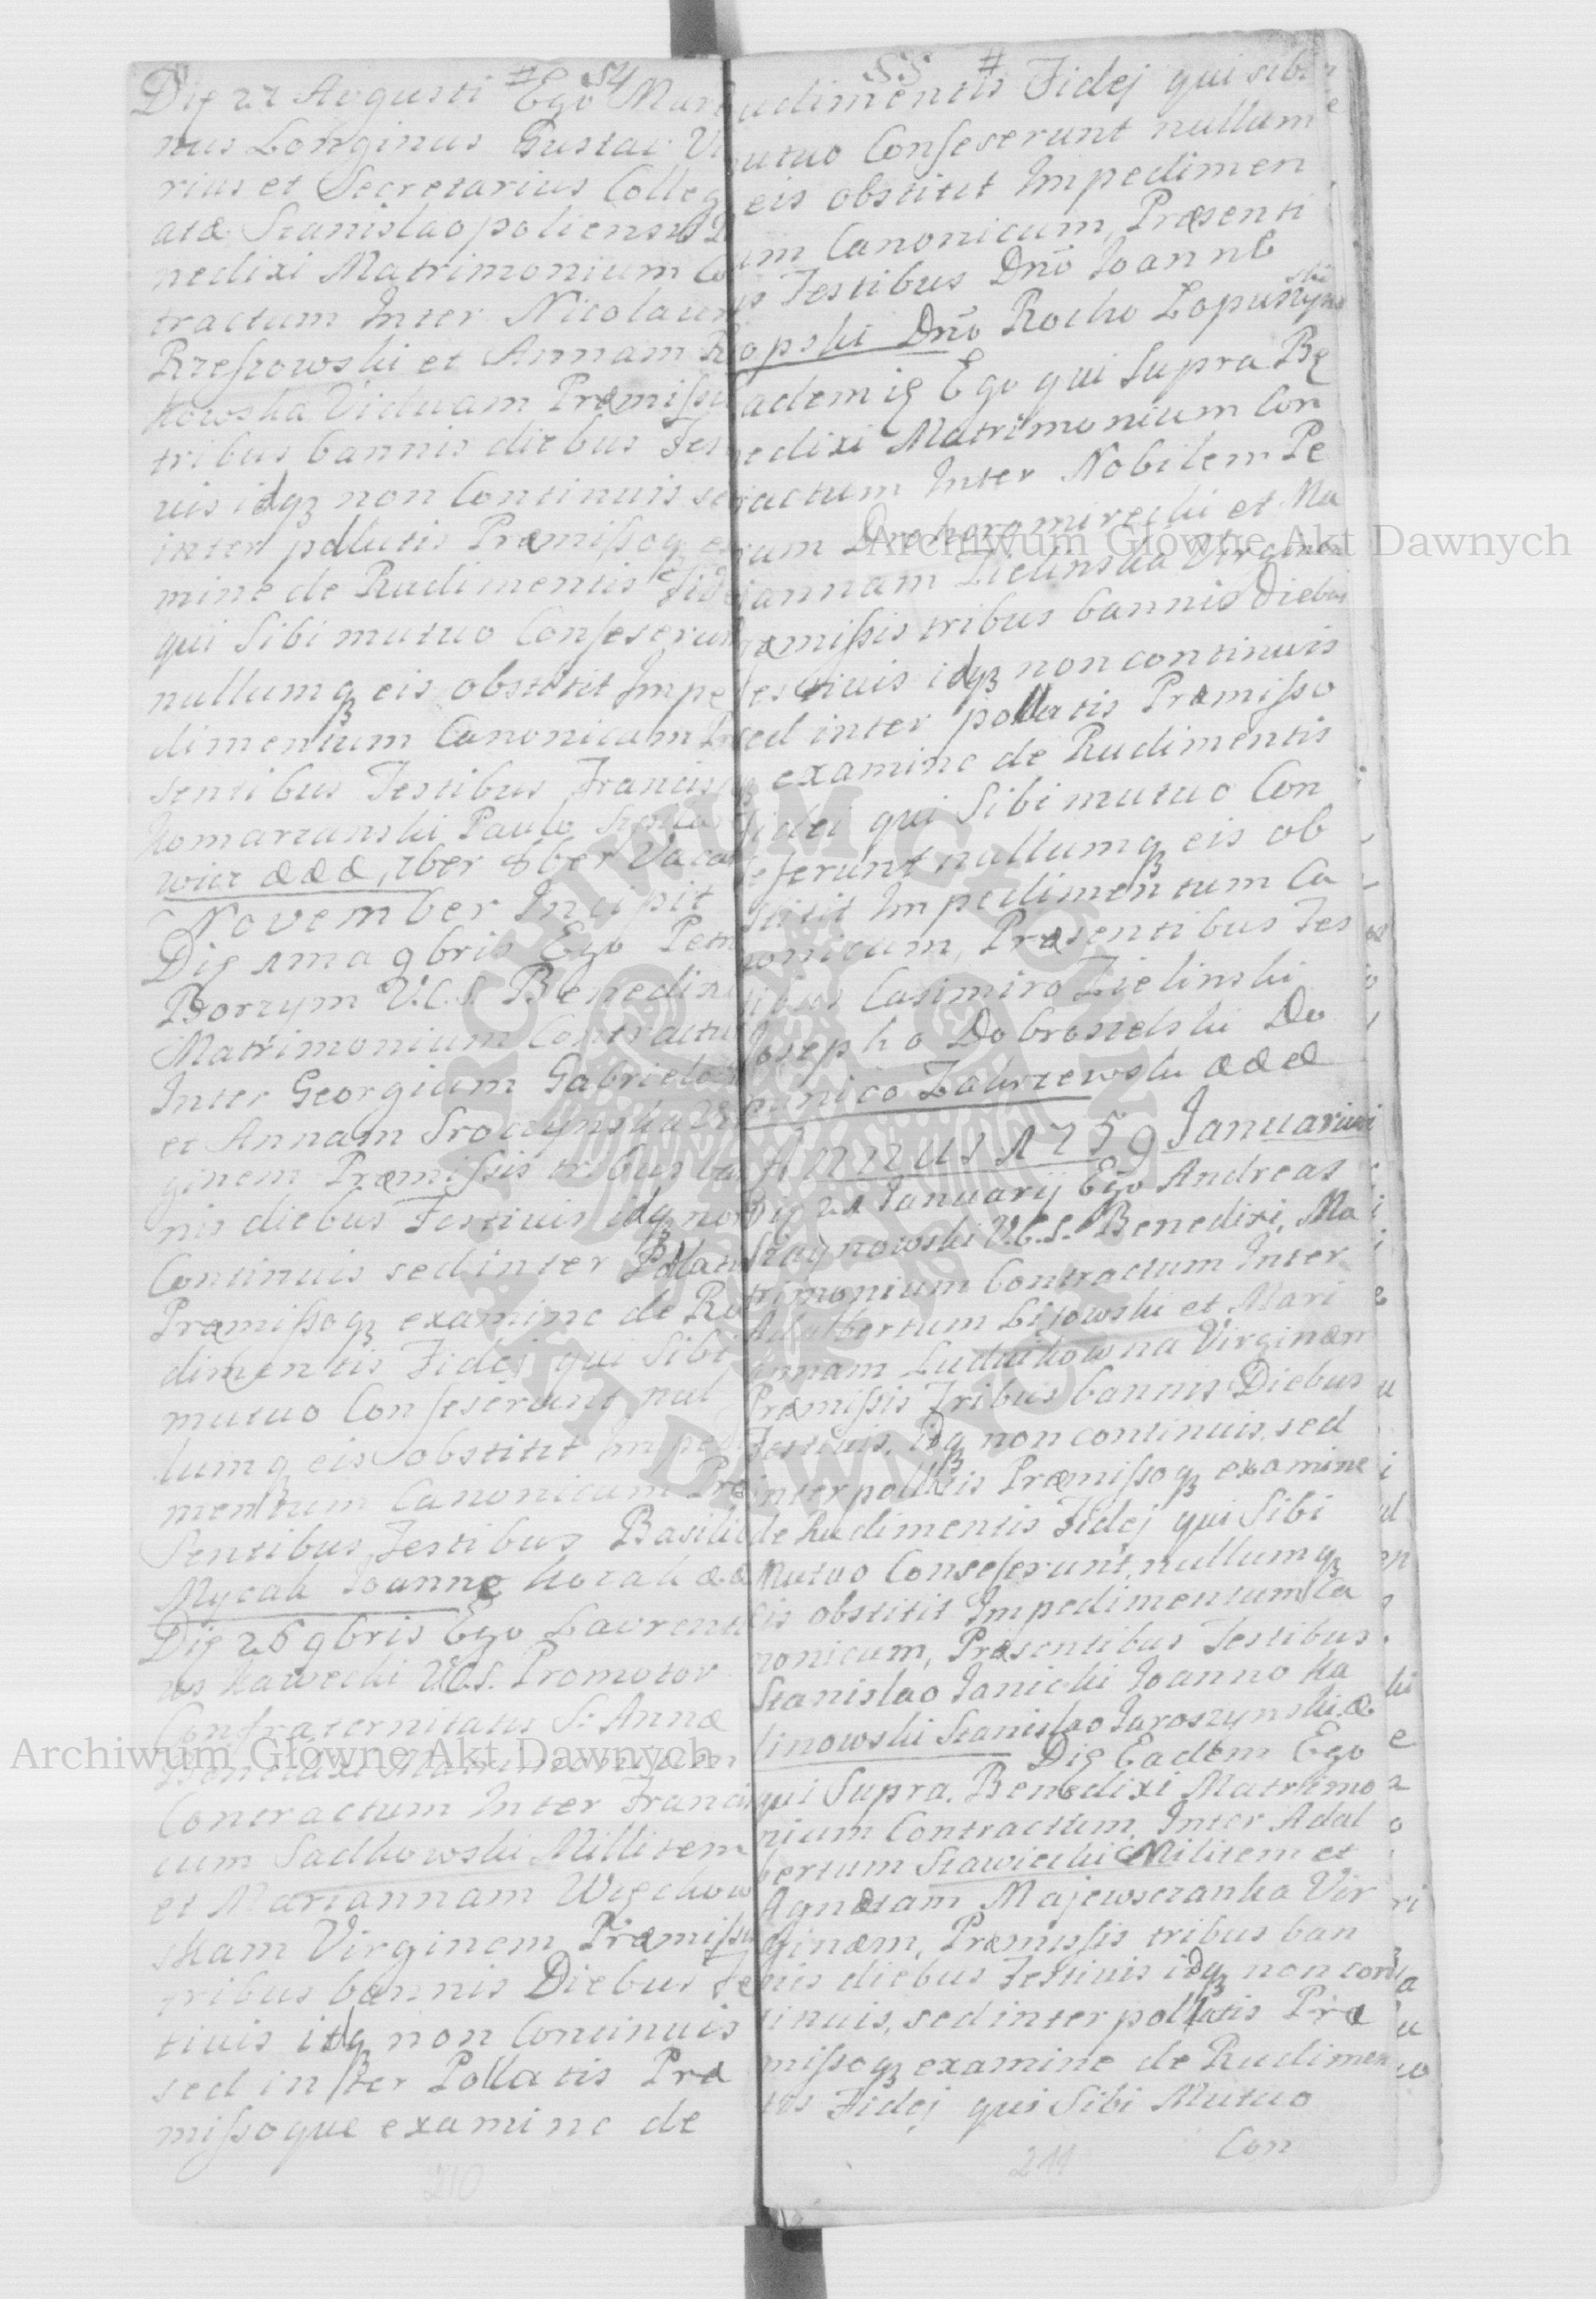 # 54
Die 22 Augusti Ego Mar
nus Longinus Gustaw Vi
rius et Secretarius Colleg
atæ Stanislaopoliensis
nedixi Matrimonium Co
tractum Inter Nicolaum
Rzeszowski et Annam R
kowska Viduam Præmissi
tribus bannis diebus Fes
uis idqz non Continuis se
inter pollutis Præmissoqz ex
mine de Rudimentis Fide
qui Sibi mutuo Conseserun
nullumqz eis obstitit Impe
dimentum Canonicum Pr
sentibus Testibus Francis
Komarzanski Paulo
wicz &&&, 7ber 8ber Vaca
November Incipit
Die 1ma 9bris Ego Petr
Borzym V.C.S. Benedixi
Matrimonium Contractu
Inter Georgium Gabriela
et Annam Sroczynska Vir
ginem Præmissis tribus ba
nis diebus Festiuis idqz non
Continuis sed inter Pollati
Præmissoqz examine de Ru
dimentis Fidej qui Sibi
mutuo Conseserunt nul
lumqz eis obstitit Impe
mentum Canonicum Præ
Sentibus Testibus Basilio
Mycak Joanne Kozak &&
Die 26 9bris Ego Laurenti
us Kawecki V.C.S. Promotor
Confraternitatis S: Annæ
Benedixi Matrimonium
Contractum Inter Francis
cum Sadkowski Millitem
et Mariannam Węchow
skam Virginem Præmissi
tribus bannis Diebus Fe
tiuis idq non Continuis
sed inter Pollatis Præ
missoque examine de
210
55 #
udimentis Fidej qui sibi
utuo Conseserunt nullum
eis obstitit Impedimen
um Canonicum, Præsenti
s Testibus Dno Joanne
opski Dno Rocho Lopuszyn
ski
adem ię Ego qui Supra Be
edixi Matrimonium Con
ractum Inter Nobilem Pe
rum Drohoromirecki et Ma
iannam Zielinska Virginem
ræmissis tribus bannis Diebus
es tiuis idqz non continuis
sed inter pollatis Præmisso
qz examine de Rudimentis
Fidei qui Sibi mutuo Con
seserunt nullumqz eis ob
stitit Impedimentum Ca
nonicum, Præsentibus Tes
tibus Casimiro Zielinski
Josepho Dobrosielski Do
minico Zakrzewski &&&
Annus 1759 Januarius
Die 21 Januarij Ego Andreas
Staynowski V.C.S. Benedixi, Ma
trimonium Contractum Inter
Adalbertum Lisowski et Mari
annam Ludwikowna Virginæm
Præmissis Tribus bannis Diebus
Festiuis, idqz non continuis, sed
inter pollatis Præmissoqz examine
de Rudimentis Fidej qui Sibi
Mutuo Conseserunt, nullumqz
eis obstitit Impedimentum Ca
nonicum, Præsentibus Testibus
Stanislao Janicki Joanno Ka
linowski Stanislao Jaroszynski &
Die Eadem Ego
qui Supra. Benedixi Matrimo
nium Contractum, Inter Adal
bertum Stawiecki Militem et
Agnætam Majewsczanka Vir
ginæm, Præmissis tribus ban
nis diebus Festiuis idqz non con
tinuis, sed inter pollatis Præ
missoqz examine de Rudimen
tis Fidej qui Sibi Mutuo
Con
211
Archiwum Główne Akt Dawnych
Archiwum Główne Akt Dawnych
ARCHIWUM GŁÓWNE
AKT DAWNYCH